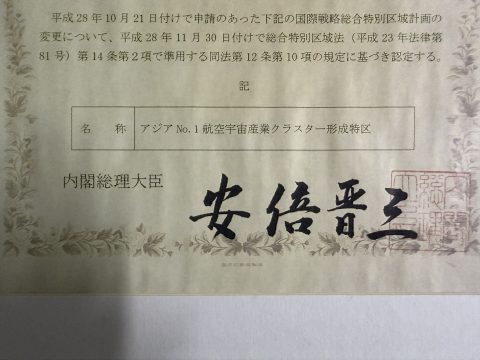 平成28年10月21日付けで申請のあった下記の国際戦略総合特別区域計画の
変更について、平成28年11月30日付けで総合特別区域法（平成23年法律第
81号）第14条第2項で準用する同法第12条第10項の規定に基づき認定する。
記
名　称　アジアNo.1航空宇宙産業クラスター形成特区
内閣総理大臣　安倍晋三